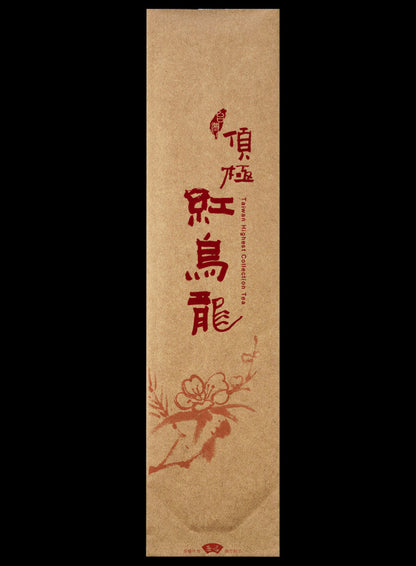 台灣
頂極
紅烏龍
Taiwan Highest Collection Tea